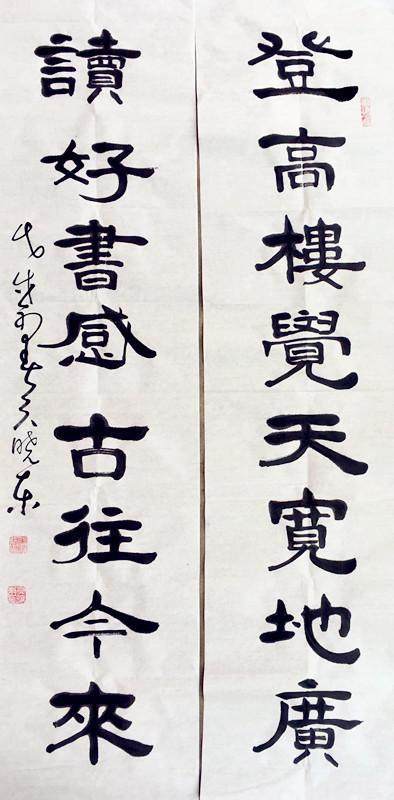 登高樓覺天寬地廣
讀好書感古往今來